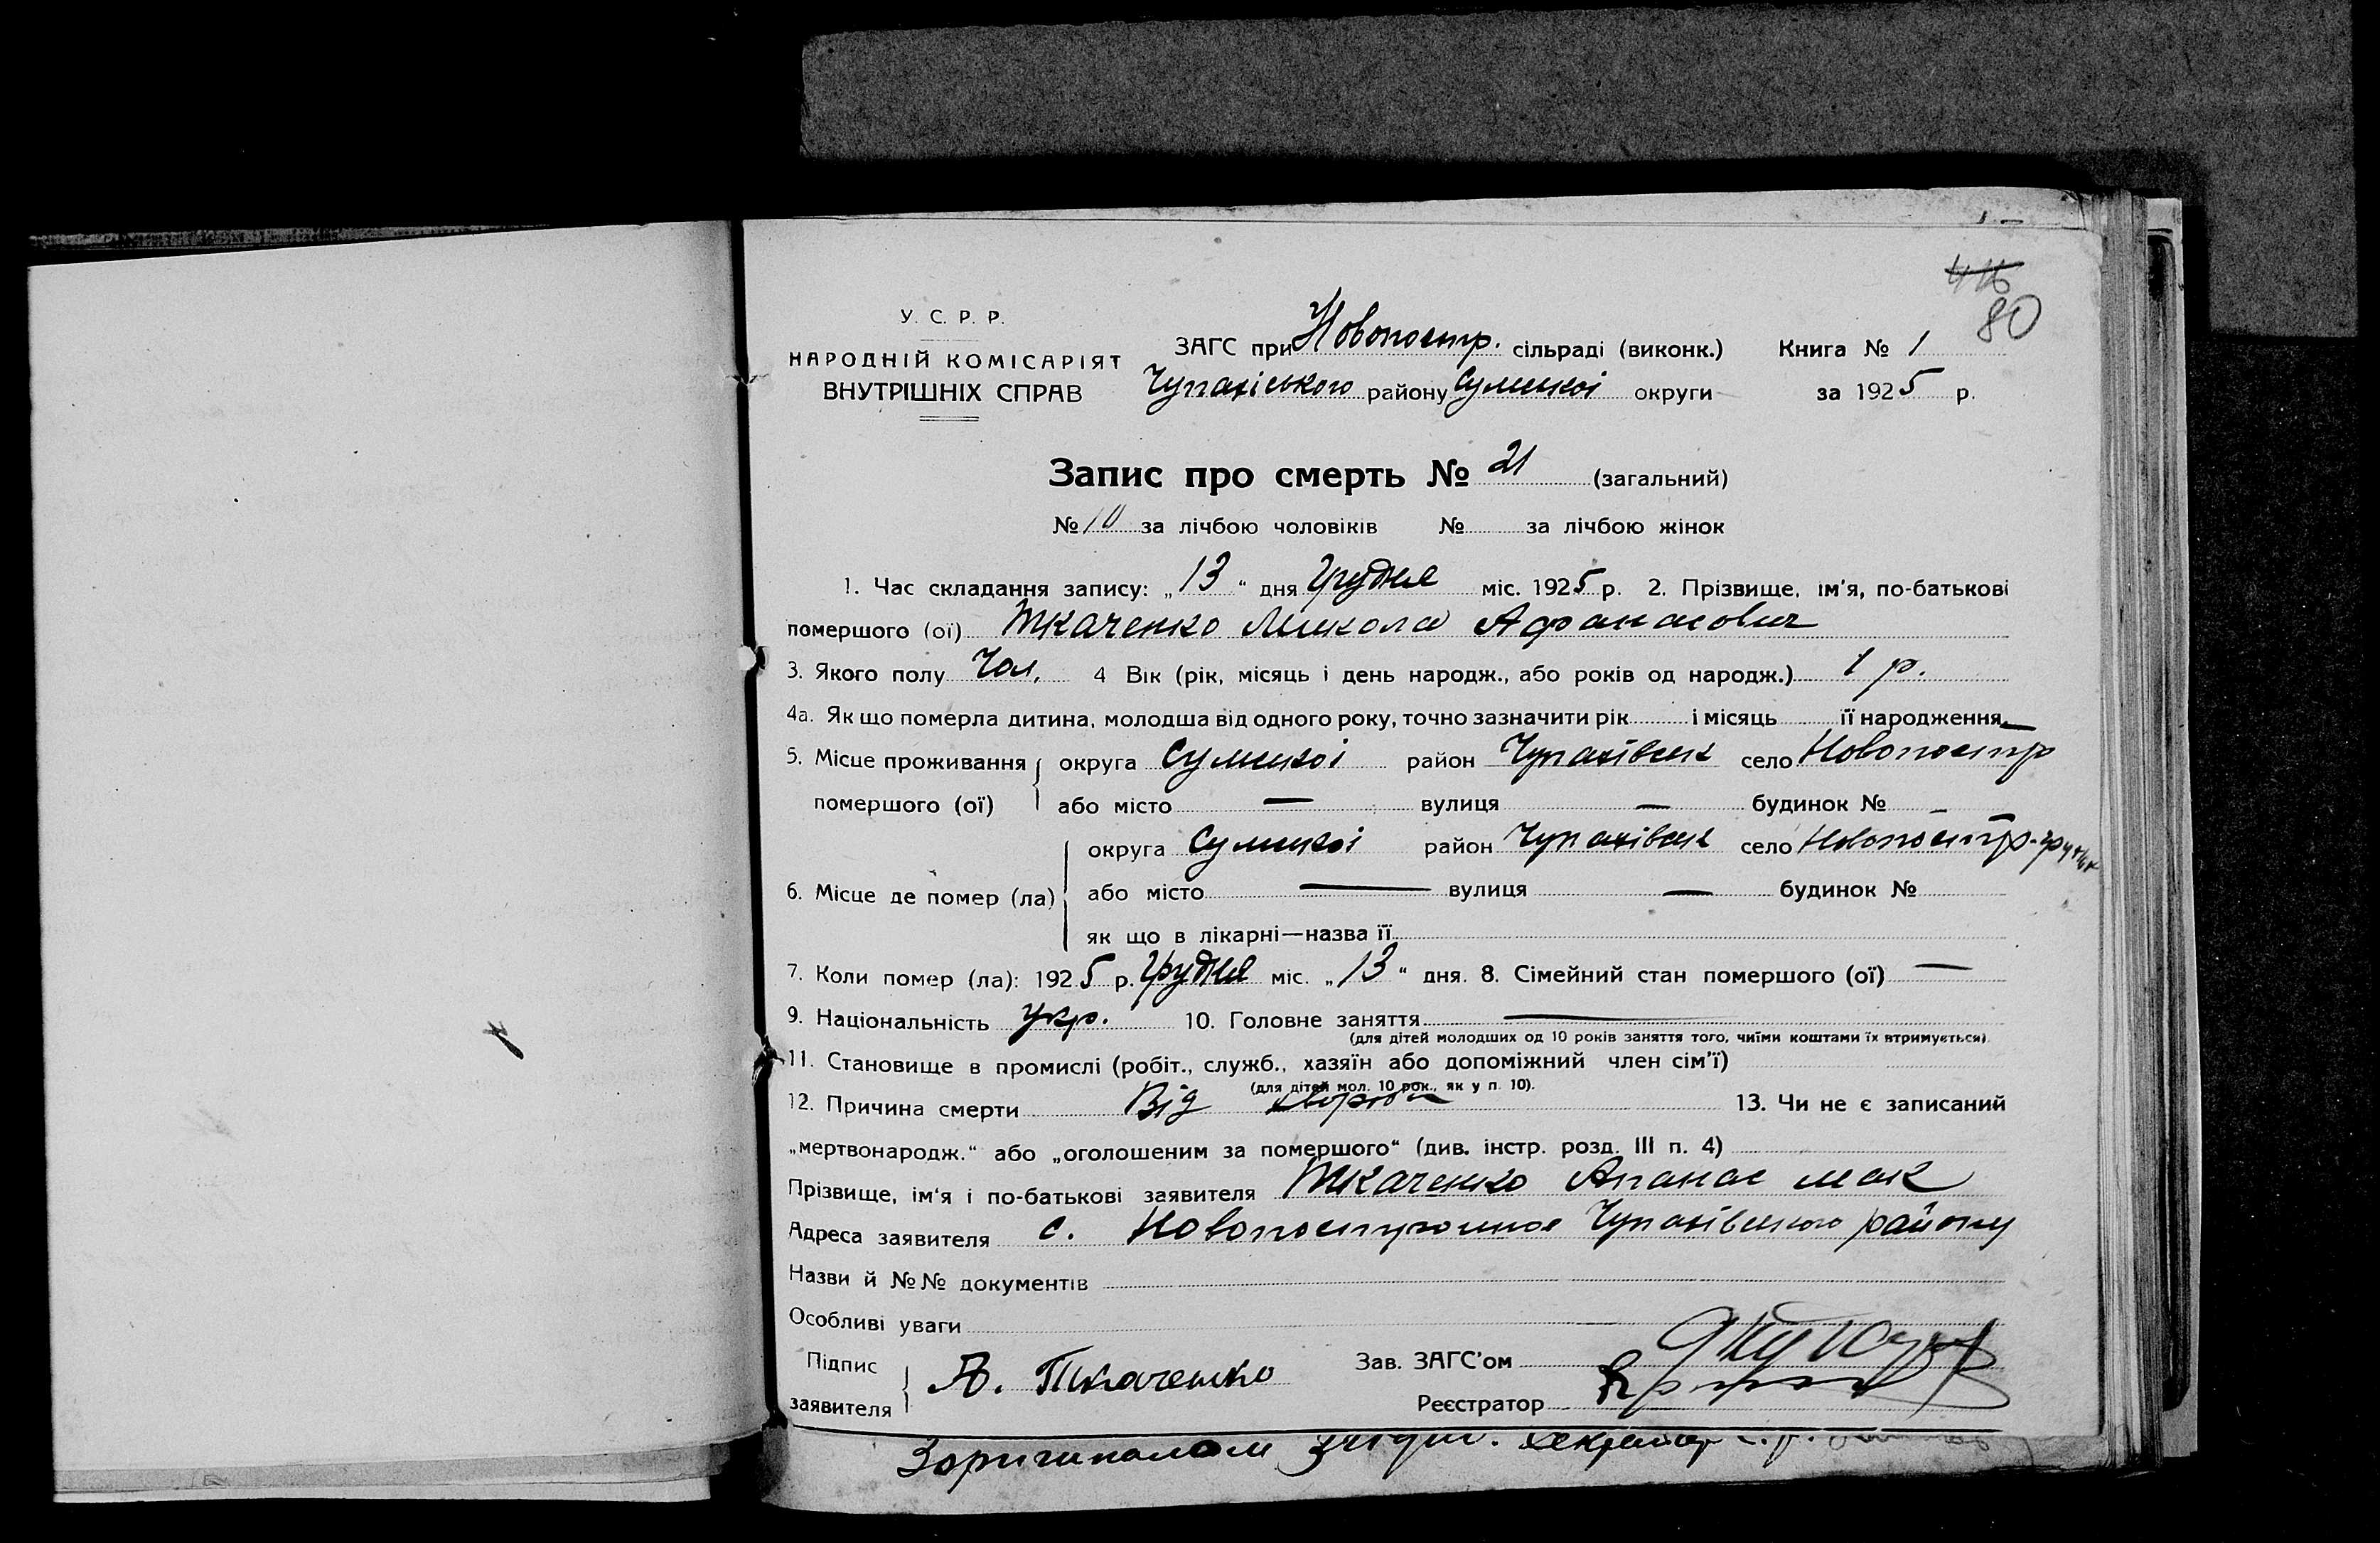 416
80
У. С. Р. Р.
НАРОДНІЙ КОМІСАРІЯТ
ВНУТРІШНІХ СПРАВ
ЗАГС при Новопостр. сільраді (виконк.) Книга № 1
Чупахівського району Сумської округи за 1925 р.
Запис про смерть № 21 (загальний)
№ 10 за лічбою чоловіків № за лічбою жінок
1. Час складання запису: „13“ дня Грудня міс. 1925 р. 2. Прізвище, ім'я, по-батькові
помершого (ої) Ткаченко Микола Афанасович
3. Якого полу Чол. 4 Вік (рік, місяць і день народж., або років од народж.) 1 р.
4а. Як що померла дитина, молодша від одного року, точно зазначити рік і місяць її народження —
5. Місце проживання округа Сумської район Чупахівськ село Новопостр
помершого (ої) або місто — вулиця — будинок № —
округа Сумської район Чупахівськ село Новопостр-
6. Місце де помер (ла) або місто — вулиця — будинок №
як що в лікарні—назва її
7. Коли помер (ла): 1925 р. Грудня міс. „13“ дня. 8. Сімейний стан помершого (ої) —
9. Національність Укр. 10. Головне заняття —
(для дітей молодших од 10 років заняття того, чиїми коштами їх втримується).
11. Становище в промислі (робіт., служб., хазяїн або допоміжний член сім'ї)
(для дітей мол. 10 рок., як у п. 10).
12. Причина смерти Від хвороби 13. Чи не є записаний
„мертвонародж.“ або „оголошеним за помершого“ (див. інстр. розд. III п. 4)
Прізвище, ім'я і по-батькові заявителя Ткаченко Апанас мак
Адреса заявителя с. Чупахівського району
Назви й №№ документів
Особливі уваги
Підпис
заявителя А. Ткаченко
Зав. ЗАГС'ом
Реєстратор
Зоригиналом Секретар